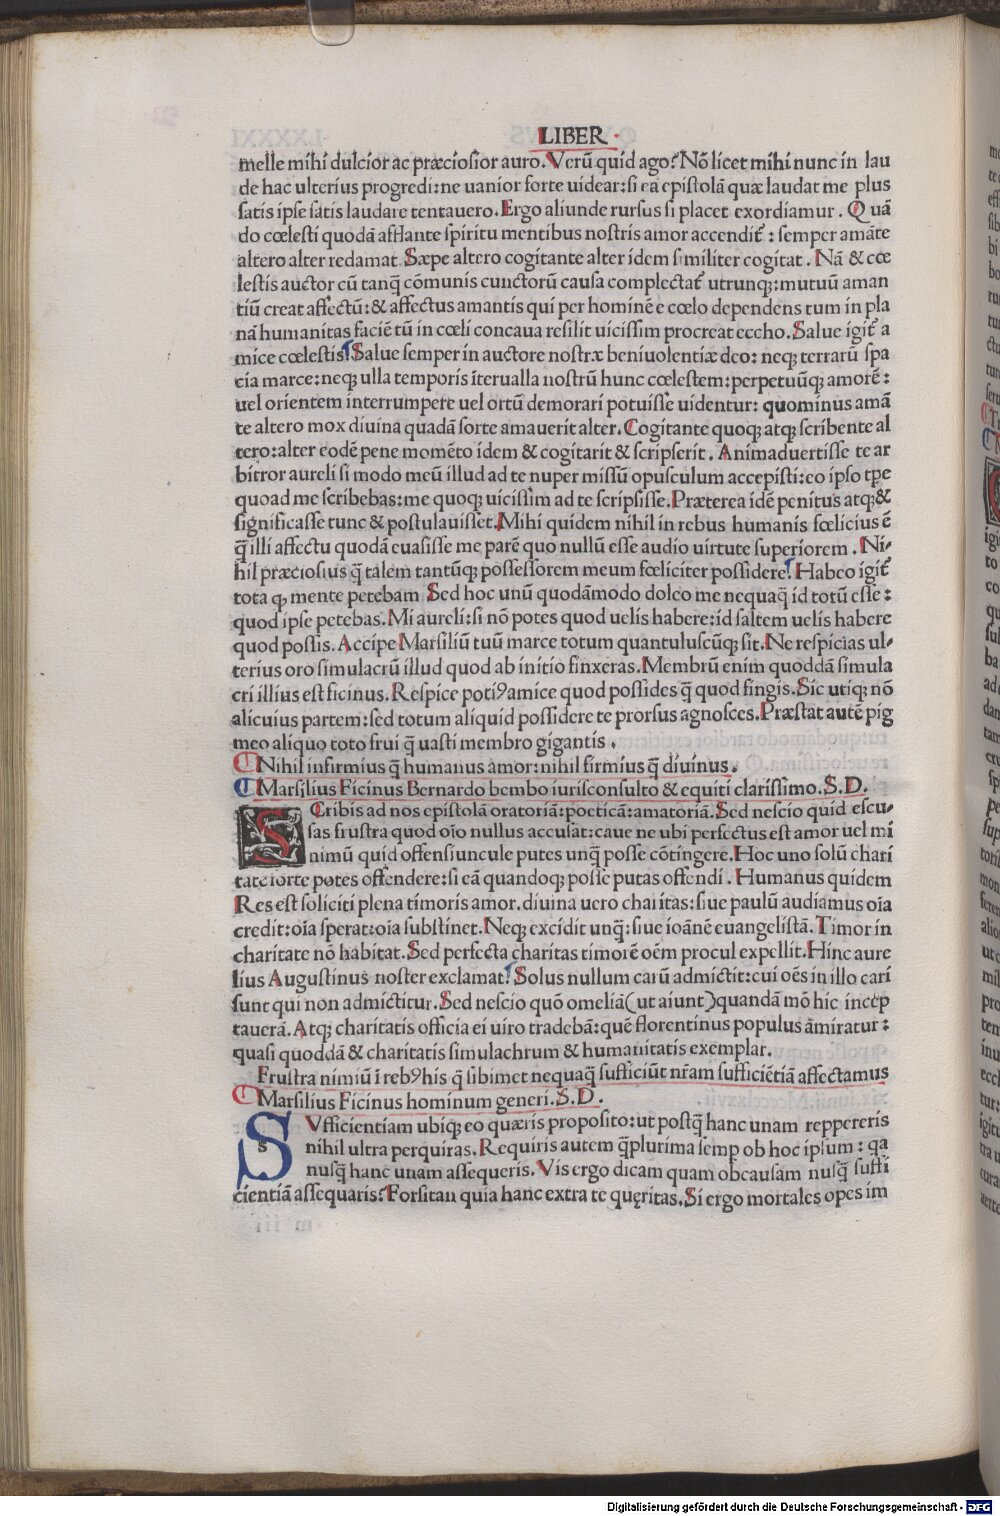 LIBER
melle mihi dulcior ac præciosior auro. Verũ quid ago? Nõ licet mihi nunc in lau
de hac ulterius progredi: ne uanior forte uidear: si ea epistolã quæ laudat me plus
satis ipse satis laudare tentauero. Ergo aliunde rursus si placet exordiamur. Quã
do cœlesti quodã afflante spiritu mentibus nostris amor accendit᷑: semper amãte
altero alter redamat. Sæpe altero cogitante alter idem similiter cogitat. Nã & cœ
lestis auctor cũ tanq̃ cõmunis cunctorũ causa complectat᷑ utrunq;: mutuũ aman
tiũ creat affectũ: & affectus amantis qui per hominẽ e cœlo dependens tum in pla
nã humanitas faciẽ tũ in cœli concaua resilit uicissim procreat eccho. Salue igit᷑ a
mice cœlestis. Salue semper in auctore nostræ beniuolentiæ deo: neq; terrarũ spa
cia marce: neq; ulla temporis ĩterualla nostrũ hunc cœlestem: perpetuũq; amorẽ:
uel orientem interrumpere uel ortũ demorari potuisse uidentur: quominus amã
te altero mox diuina quadã sorte amauerit alter. Cogitante quoq; atq; scribente al
tero: alter eodẽ pene momẽto idem & cogitarit & scripserit. Animaduertisse te ar
bitror aureli si modo meũ illud ad te nuper missũ opusculum accepisti: eo ipso tp̃e
quo ad me scribebas: me quoq; uicissim ad te scripsisse. Præterea idẽ penitus atq; &
significasse tunc & postulauisset. Mihi quidem nihil in rebus humanis fœlicius ẽ
q̃ illi affectu quodã euasisse me parẽ quo nullũ esse audio uirtute superiorem. Ni-
hil præciosius q̃ talem tantũq; possessorem meum fœliciter possidere. Habeo igit᷑
tota q; mente petebam Sed hoc unũ quodãmodo doleo me nequaq̃ id totũ esse:
quod ipse petebas. Mi aureli: si nõ potes quod uelis habere: id saltem uelis habere
quod possis. Accipe Marsiliũ tuũ marce totum quantuluscũq; sit. Ne respicias ul-
terius oro simulacrũ illud quod ab initio finxeras. Membrũ enim quoddã simula
cri illius est ficinus. Respice poti⁹ amice quod possides q̃ quod fingis. Sic utiq; nõ
alicuius partem: sed totum aliquid possidere te prorsus agnosces. Præstat autẽ pig
meo aliquo toto frui q̃ uasti membro gigantis.
Nihil infirmius q̃ humanus amor: nihil firmius q̃ diuinus.
Marsilius Ficinus Bernardo bembo iurisconsulto & equiti clarissimo. S. D.
SCribis ad nos epistolã oratoriã: poeticã: amatoriã. Sed nescio quid escu-
sas frustra quod oĩo nullus accusat: caue ne ubi perfectus est amor uel mi
nimũ quid offensiuncule putes unq̃ posse cõtingere. Hoc uno solũ chari
tate forte potes offendere: si eã quandoq; posse putas offendi. Humanus quidem
Res est soliciti plena timoris amor. diuina uero charitas: siue paulũ audiamus oĩa
credit: oĩa sperat: oĩa substinet. Neq; excidit unq̃: siue ioãnẽ euangelistã. Timor in
charitate nõ habitat. Sed perfecta charitas timorẽ oẽm procul expellit. Hinc aure
lius Augustinus noster exclamat. Solus nullum carũ admictit: cui oẽs in illo cari
sunt qui non admictitur. Sed nescio quõ omeliã (ut aiunt) quandã mõ hic incep
tauerã. Atq; charitatis officia ei uiro tradebã: quẽ florentinus populus ãmiratur:
quasi quoddã & charitatis simulachrum & humanitatis exemplar.
Frustra nimiũ ĩ reb⁹ his q̃ sibimet nequaq̃ sufficiũt nr̃am sufficiẽtiã affectamus
Marsilius Ficinus hominum generi. S. D.
SVfficientiam ubiq; eo quæris proposito: ut postq̃ hanc unam reppereris
nihil ultra perquiras. Requiris autem q̃plurima semp ob hoc ipsum: qa
nusq̃ hanc unam assequeris. Vis ergo dicam quam obcausam nusq̃ suffi
cientiã assequaris? Forsitan quia hanc extra te quęritas. Si ergo mortales opes im
Digitalisierung gefördert durch die Deutsche Forschungsgemeinschaft - DFG